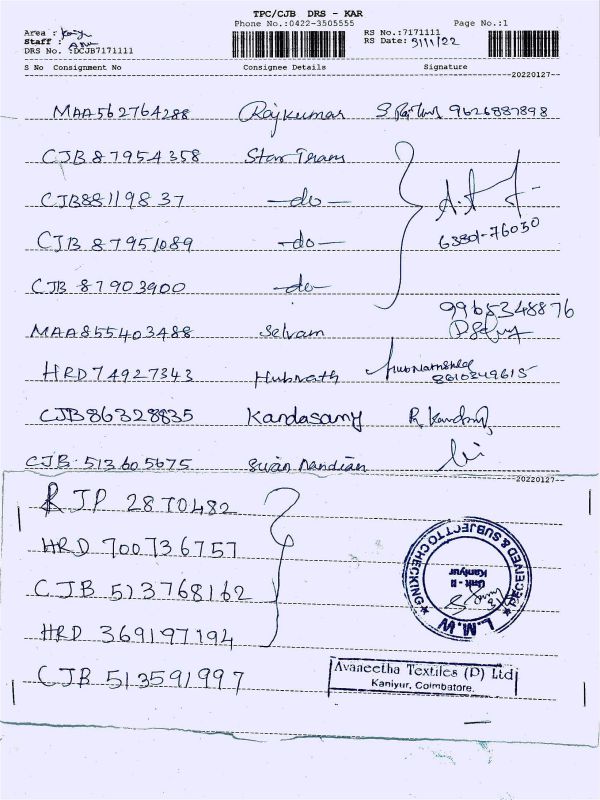 TPC/CJB DRS - KAR
Phone No.:0422-3505555 Page No.:1
Area :
Staff : Anu
DRS No. :DCJB7171111
RS No.:7171111
RS Date: 31/1/22
S No Consignment No Consignee Details Signature
--20220127--
MAA562764288 Rajkumar 9626887898
CJB 87954358 Star Trans
CJB88119837 -do-
CJB 87951089 -do- 6380-76030
CJB 87903900 -do-
9965348876
MAA855403488 Selvam
HRD74927343 Hubnath
8610349615
CJB86328835 Kandasamy
CJB 513605675
--20220127--
RJP 2870482
HRD 700736757
CJB 513768162
HRD 369197194
CJB 513591997
RECEIVED & SUBJECT TO CHECKING
Unit - II
Kaniyur
L.M.W.
Avaneetha Textiles (P) Ltd
Kaniyur, Coimbatore.